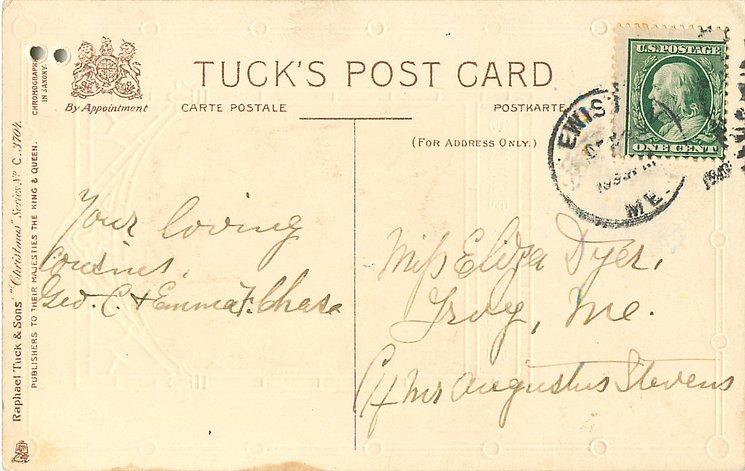 TUCK'S POST CARD
By Appointment
CARTE POSTALE
POSTKARTE
(FOR ADDRESS ONLY.)
CHROMOGRAPHED IN SAXONY.
Raphael Tuck & Sons' "Christmas" Series No C. 3704.
PUBLISHERS TO THEIR MAJESTIES THE KING & QUEEN.
U.S. POSTAGE
ONE CENT
EWIS
ME.
Your loving
cousins,
Geo. C. & Emma F. Chase
Miss Eliza Dyer,
Troy, Me.
C/f Mr Augustus Stevens